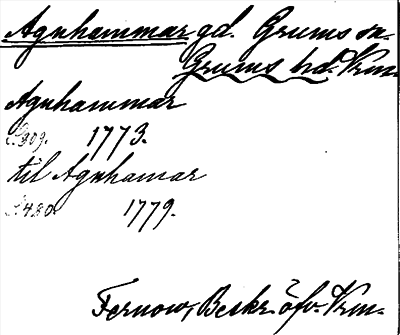 Agnhammar gd. Grums sn
Grums hd. Vrm.
Agnhammar
S. 309. 1773.
til Agnhamar
S. 430. 1779.
Fernow, Beskr. öfv. Vrm.